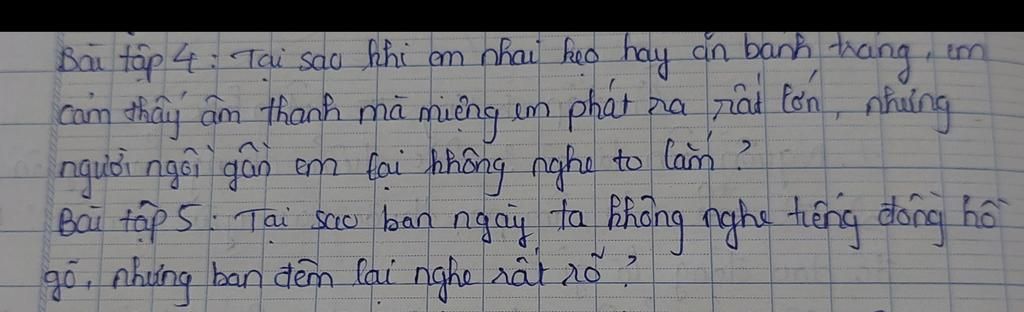 Bài tập 4: Tại sao khi em nhai kẹo hay ăn bánh tráng, em
cảm thấy âm thanh mà miệng em phát ra rất lớn, nhưng
người ngồi gần em lại không nghe to lắm?
Bài tập 5: Tại sao ban ngày ta không nghe tiếng đồng hồ
gõ, nhưng ban đêm lại nghe rất rõ?